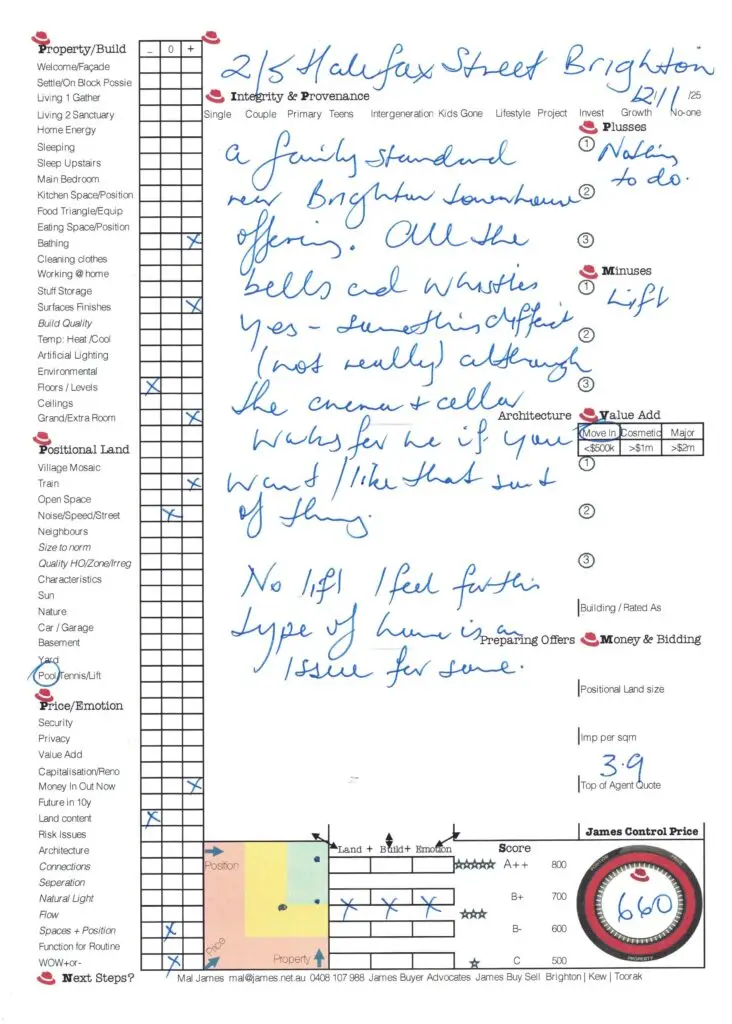 2/5 Halifax Street Brighton
12/1 /25
Property/Build
- 0 +
Welcome/Façade
Settle/On Block Possie
Living 1 Gather
Living 2 Sanctuary
Home Energy
Sleeping
Sleep Upstairs
Main Bedroom
Kitchen Space/Position
Food Triangle/Equip
Eating Space/Position
Bathing
Cleaning clothes
Working @ home
Stuff Storage
Surfaces Finishes
Build Quality
Temp: Heat /Cool
Artificial Lighting
Environmental
Floors / Levels
Ceilings
Grand/Extra Room
Positional Land
Village Mosaic
Train
Open Space
Noise/Speed/Street
Neighbours
Size to norm
Quality HO/Zone/Irreg
Characteristics
Sun
Nature
Car / Garage
Basement
Yard
Pool/Tennis/Lift
Price/Emotion
Security
Privacy
Value Add
Capitalisation/Reno
Money In Out Now
Future in 10y
Land content
Risk Issues
Architecture
Connections
Seperation
Natural Light
Flow
Spaces + Position
Function for Routine
WOW+or-
Next Steps?
Integrity & Provenance
Single Couple Primary Teens Intergeneration Kids Gone Lifestyle Project Invest Growth No-one
a fairly standard
new Brighton townhouse
offering. All the
bells and whistles
yes - something different
(not really) although
the cinema + cellar
works for me if you
want / like that sort
of thing.
No lift I feel for this
type of home is an
issue for some.
Plusses
1 Nothing
to do.
2
3
Minuses
1 Lift
2
3
Architecture Value Add
Move In Cosmetic Major
<$500k >$1m >$2m
1
2
3
Building / Rated As
Preparing Offers Money & Bidding
Positional Land size
Imp per sqm
3.9
Top of Agent Quote
Position
Price
Property
Land + Build + Emotion
Score
A++ 800
B+ 700
B- 600
C 500
James Control Price
POSITION
PRICE
660
PROPERTY
Mal James mal@james.net.au 0408 107 988 James Buyer Advocates James Buy Sell Brighton | Kew | Toorak